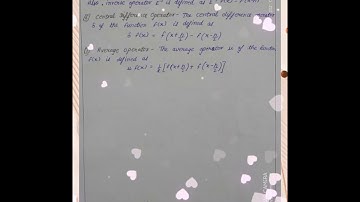 Also, inverse operator E⁻¹ is defined as E
Central Difference Operator - The central difference operator
δ of the function f(x) is defined as
δ f(x) = f(x+h/2) - f(x-h/2)
Average Operator - The average operator μ of the function
f(x) is defined as
μ f(x) = 1/2 [f(x+h/2) + f(x-h/2)]